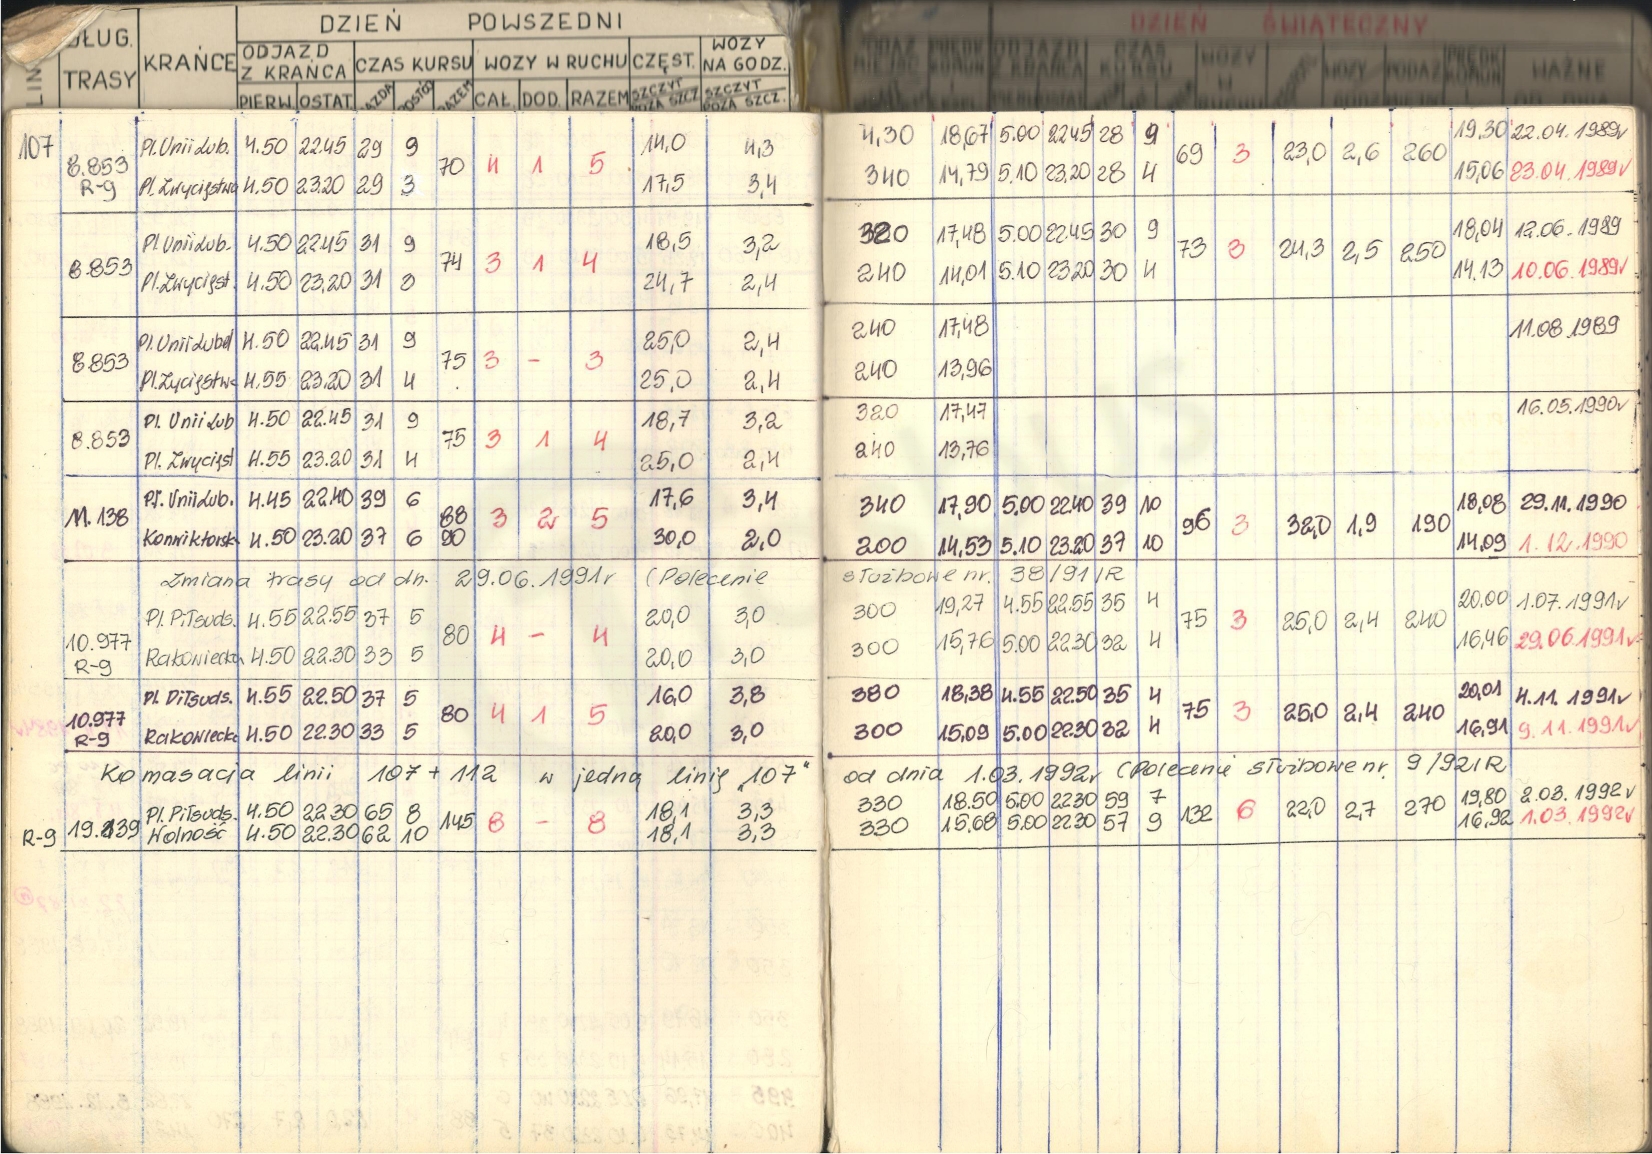 DZIEŃ POWSZEDNI DZIEŃ ŚWIĄTECZNY
DŁUG. TRASY KRAŃCE ODJAZD Z KRAŃCA CZAS KURSU WOZY W RUCHU CZĘST. WOZY NA GODZ.
PIERW. OSTAT. JAZDA POSTÓJ RAZEM CAŁ. DOD. RAZEM SZCZYT POZA SZCZ. SZCZYT POZA SZCZ.
107 Pl. Unii Lub. 4.50 22.45 29 9 14,0 4,3 4,30 18,67 5.00 22.45 28 9 19,30 22.04.1989r
8.853 R-9 70 4 1 5 69 3 23,0 2,6 260
Pl. Zwycięstwa 4.50 23.20 29 3 17,5 3,4 340 14,79 5.10 23.20 28 4 15,06 23.04.1989r
Pl. Unii Lub. 4.50 22.45 31 9 18,5 3,2 320 17,48 5.00 22.45 30 9 18,04 12.06.1989
8.853 74 3 1 4 73 3 24,3 2,5 250
Pl. Zwycięst. 4.50 23.20 31 3 24,7 2,4 240 14,01 5.10 23.20 30 4 14.13 10.06.1989r
Pl. Unii Lubel 4.50 22.45 31 9 25,0 2,4 240 17,48 11.08.1989
8.853 75 3 - 3
Pl. Zycięstwa 4.55 23.20 31 4 25,0 2,4 240 13,96
Pl. Unii Lub 4.50 22.45 31 9 18,7 3,2 320 17,47 16.05.1990r
8.853 75 3 1 4
Pl. Zwycięst 4.55 23.20 31 4 25,0 2,4 240 13,76
Pl. Unii Lub. 4.45 22.40 39 6 88 17,6 3,4 340 17,90 5.00 22.40 39 10 18,08 29.11.1990
11.138 3 2 5 96 3 32,0 1,9 190
Konwiktorsk 4.50 23.20 37 6 90 30,0 2,0 200 14,53 5.10 23.20 37 10 14,09 1.12.1990
Zmiana trasy od dn. 29.06.1991r (Polecenie służbowe nr. 38/91/R
Pl. Piłsuds. 4.55 22.55 37 5 20,0 3,0 300 19,27 4.55 22.55 35 4 20.00 1.07.1991r
10.977 R-9 80 4 - 4 75 3 25,0 2,4 240
Rakowiecka 4.50 22.30 33 5 20,0 3,0 300 15,76 5.00 22.30 32 4 16,46 29.06.1991r
Pl. Piłsuds. 4.55 22.50 37 5 16,0 3,8 380 18,38 4.55 22.50 35 4 20,01 4.11.1991r
10.977 R-9 80 4 1 5 75 3 25,0 2,4 240
Rakowiecka 4.50 22.30 33 5 20,0 3,0 300 15,09 5.00 22.30 32 4 16,91 9.11.1991r
Komasacja linii 107 + 112 w jedną linię "107" od dnia 1.03.1992r (Polecenie służbowe nr. 9/92/R
Pl. Piłsuds. 4.50 22.30 65 8 18,1 3,3 330 18.50 5.00 22.30 59 7 19,80 2.03.1992r
R-9 19.139 145 8 - 8 132 6 22,0 2,7 270
Wolność 4.50 22.30 62 10 18,1 3,3 330 15,68 5.00 22.30 57 9 16,92 1.03.1992r